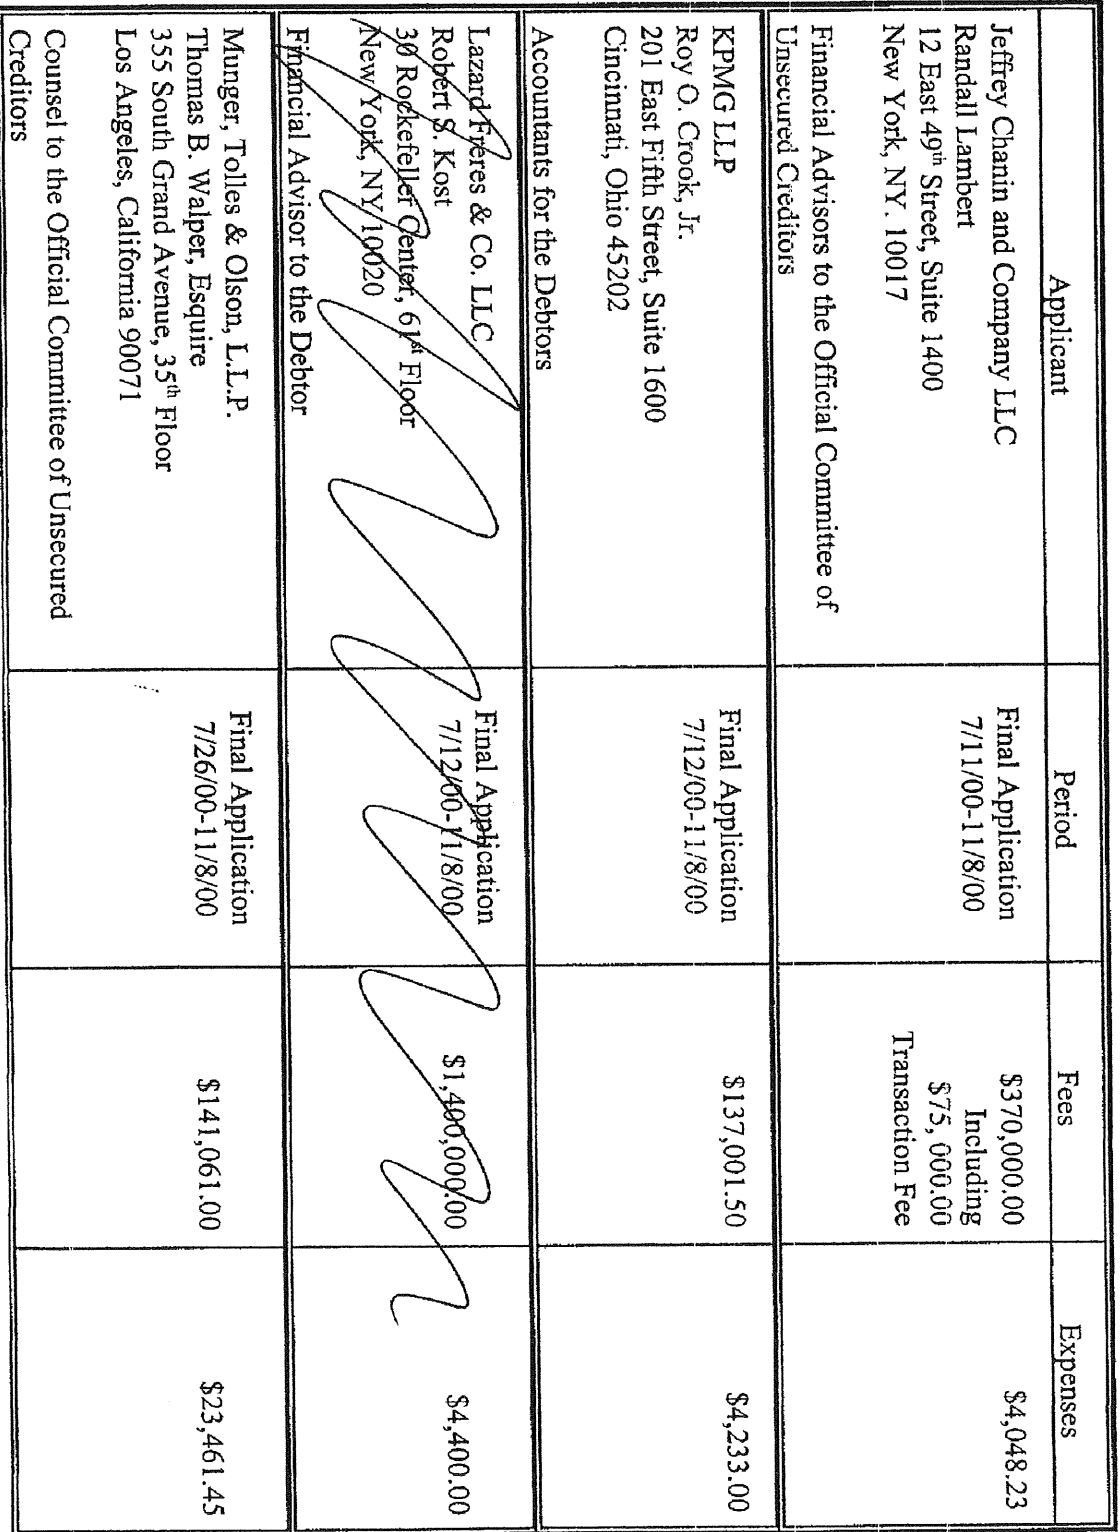 Applicant
Period
Fees
Expenses
Jeffrey Chanin and Company LLC
Randall Lambert
12 East 49th Street, Suite 1400
New York, NY. 10017
Financial Advisors to the Official Committee of
Unsecured Creditors
Final Application
7/11/00-11/8/00
$370,000.00
Including
$75, 000.00
Transaction Fee
$4,048.23
KPMG LLP
Roy O. Crook, Jr.
201 East Fifth Street, Suite 1600
Cincinnati, Ohio 45202
Accountants for the Debtors
Final Application
7/12/00-11/8/00
$137,001.50
$4,233.00
Lazard Freres & Co. LLC
Robert S. Kost
30 Rockefeller Center, 61st Floor
New York, NY 10020
Financial Advisor to the Debtor
Final Application
7/12/00-11/8/00
$1,400,000.00
$4,400.00
Munger, Tolles & Olson, L.L.P.
Thomas B. Walper, Esquire
355 South Grand Avenue, 35th Floor
Los Angeles, California 90071
Counsel to the Official Committee of Unsecured
Creditors
Final Application
7/26/00-11/8/00
$141,061.00
$23,461.45